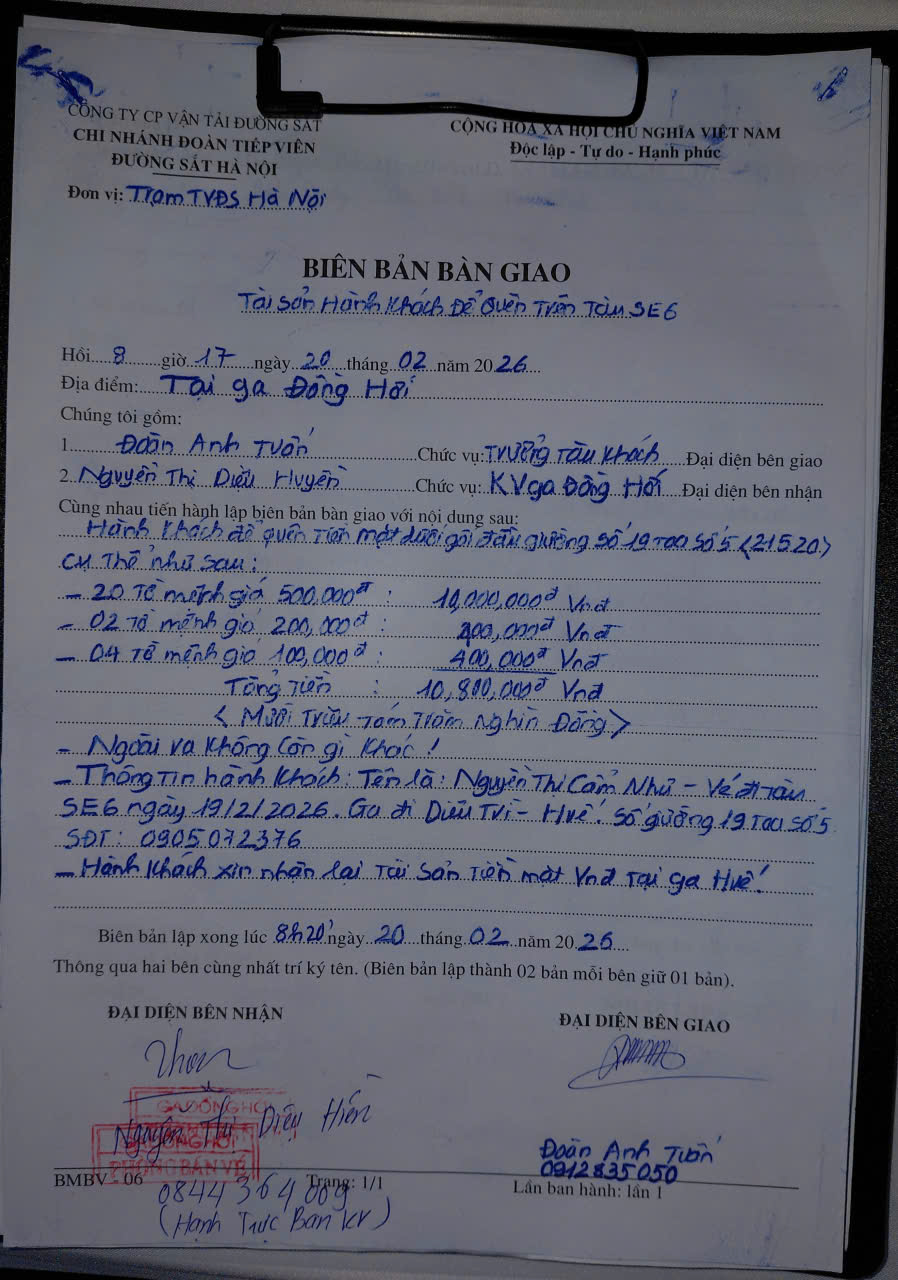 CÔNG TY CP VẬN TẢI ĐƯỜNG SẮT
CHI NHÁNH ĐOÀN TIẾP VIÊN
ĐƯỜNG SẮT HÀ NỘI
Đơn vị: Trạm TVĐS Hà Nội
CỘNG HOÀ XÃ HỘI CHỦ NGHĨA VIỆT NAM
Độc lập - Tự do - Hạnh phúc
BIÊN BẢN BÀN GIAO
Tài sản Hành khách Để Quên Trên Tàu SE6
Hồi 8 giờ 17 ngày 20 tháng 02 năm 2026
Địa điểm: Tại ga Đồng Hới
Chúng tôi gồm:
1. Đoàn Anh Tuấn Chức vụ: Trưởng tàu khách Đại diện bên giao
2. Nguyễn Thị Diệu Huyền Chức vụ: KV ga Đồng Hới Đại diện bên nhận
Cùng nhau tiến hành lập biên bản bàn giao với nội dung sau:
Hành khách để quên tiền mặt dưới gối đầu giường số 19 toa số 5 <21520>
cụ thể như sau:
- 20 Tờ mệnh giá 500,000đ : 10,000,000đ Vnđ
- 02 Tờ mệnh giá 200,000đ : 400,000đ Vnđ
- 04 Tờ mệnh giá 100,000đ : 400,000đ Vnđ
Tổng Tiền : 10,800,000đ Vnđ
< Mười Triệu Tám Trăm Nghìn Đồng >
- Ngoài ra không còn gì khác !
- Thông tin hành khách: Tên là: Nguyễn Thị Cẩm Như - Vé đi tàu
SE6 ngày 19/2/2026. Ga đi Diêu Trì - Huế. Số giường 19 toa số 5
SĐT: 0905072376
- Hành khách xin nhận lại Tài sản Tiền mặt Vnđ Tại ga Huế!
Biên bản lập xong lúc 8h20' ngày 20 tháng 02 năm 2026
Thông qua hai bên cùng nhất trí ký tên. (Biên bản lập thành 02 bản mỗi bên giữ 01 bản).
ĐẠI DIỆN BÊN NHẬN
ĐẠI DIỆN BÊN GIAO
GA ĐỒNG HỚI
Nguyễn Thị Diệu Hiền
GA ĐỒNG HỚI
PHÒNG BÁN VÉ
Đoàn Anh Tuấn
0912835050
BMBV - 06
Trang: 1/1
Lần ban hành: lần 1
0844364009
(Hạnh Trực Ban KV)